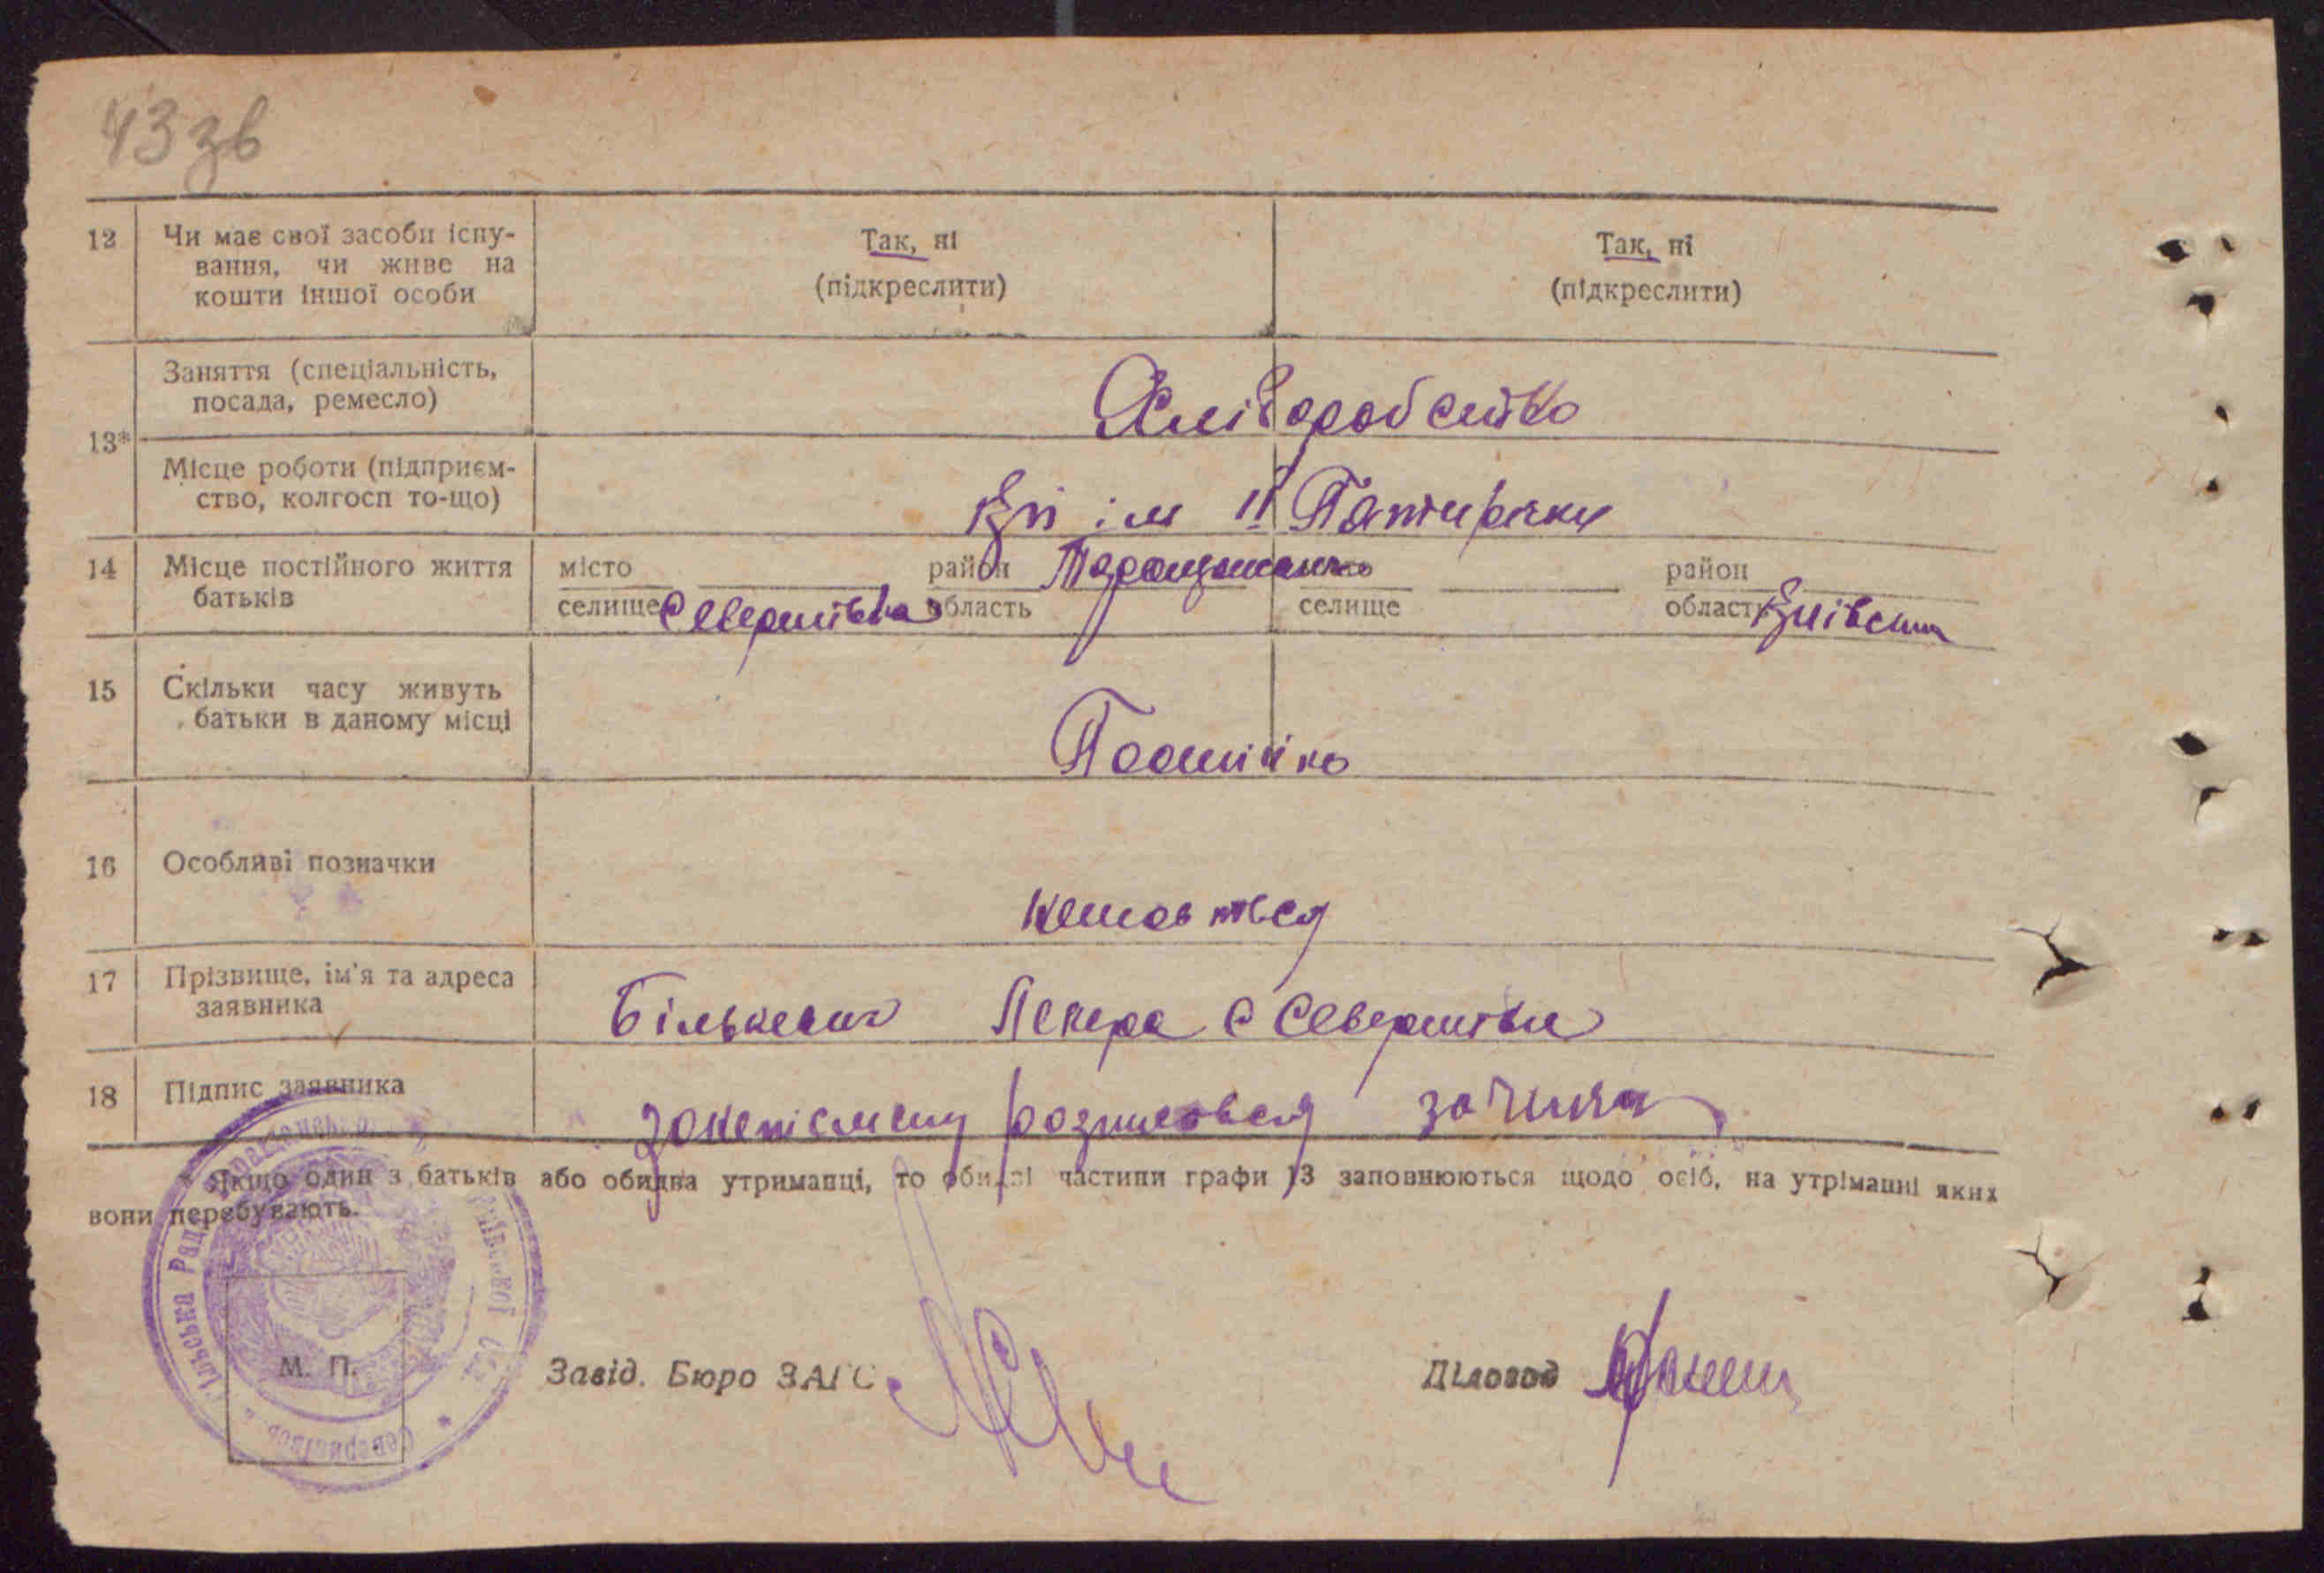 43 зв
12 Чи має свої засоби існу-
вання, чи живе на
кошти іншої особи
Так, ні
(підкреслити)
Так, ні
(підкреслити)
13*
Заняття (спеціальність,
посада, ремесло)
Хліборобство
Місце роботи (підприєм-
ство, колгосп то-що)
ім ІІ Пятирічки
14 Місце постійного життя
батьків
місто район Таращанськ район
селище Северинівка область селище область Київська
15 Скільки часу живуть
батьки в даному місці
Постійно
16 Особливі позначки
17 Прізвище, ім'я та адреса
заявника
с Северинівки
18 Підпис заявника
* Якщо один з батьків або обидва утриманці, то обидві частини графи 13 заповнюються щодо осіб, на утріманні яких
вони перебувають.
М. П.
Завід. Бюро ЗАГС
Діловод